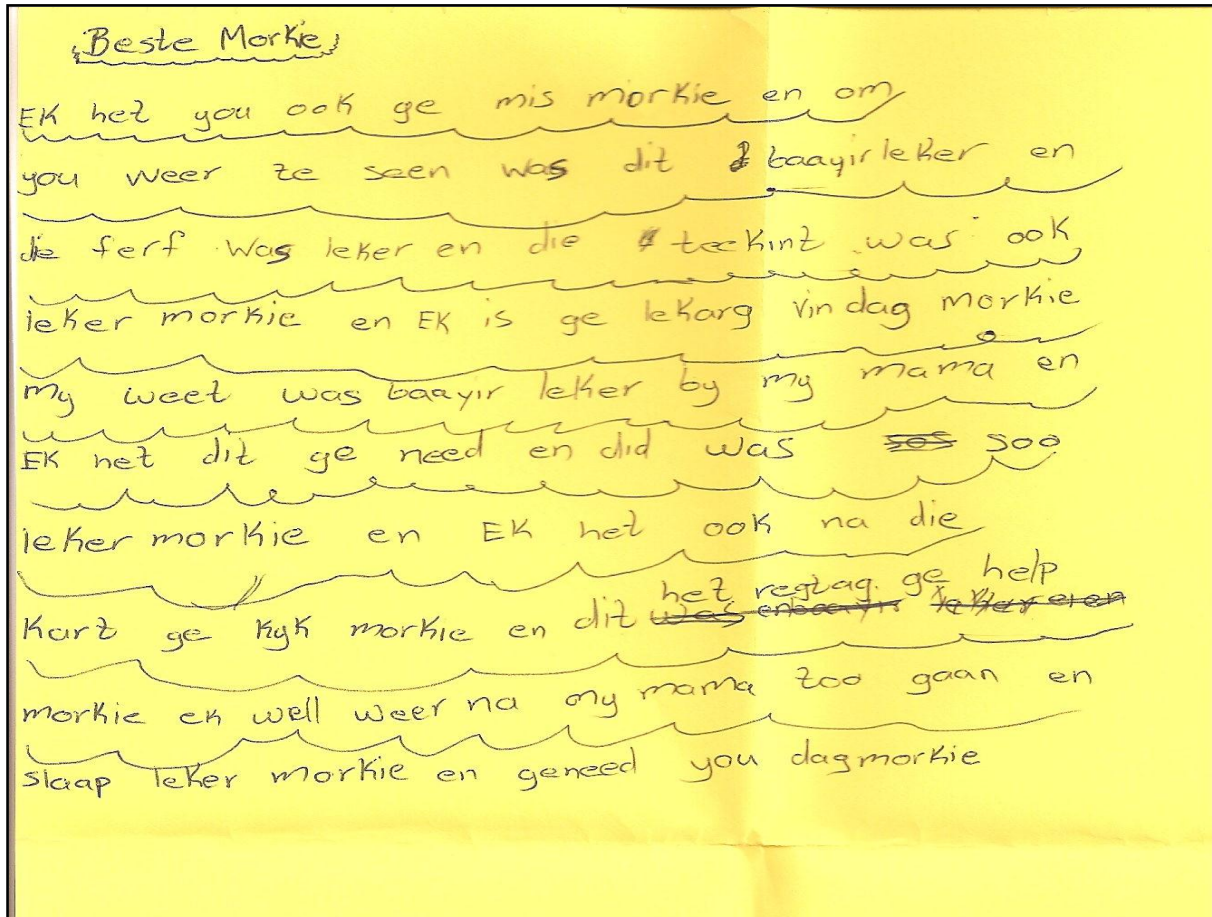 Beste Morkie
EK het you ook ge mis morkie en om
you weer te seen was dit baayir leker en
die ferf was leker en die teekint was ook
leker morkie en EK is ge lekarg vin dag morkie
my weet was baayir leker by my mama en
EK het dit ge need en did was sos soo
leker morkie en EK het ook na die
het regtag. ge help
Kart ge kyk morkie en dit was
morkie ek well weer na my mama too gaan en
slaap leker morkie en geneed you dag morkie